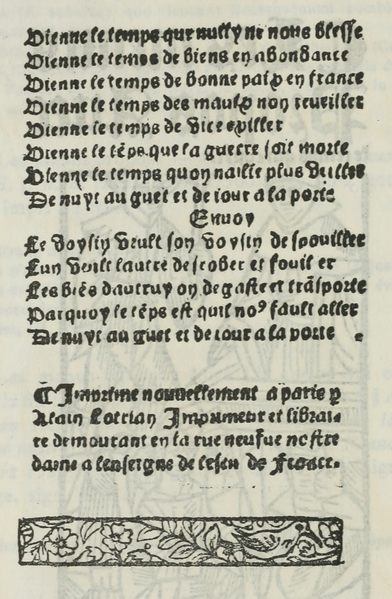 Vienne le temps que nully ne nous blesse
Vienne le temps de biens en abondance
Vienne le temps de bonne paix en france
Vienne le temps des maulx non reueiller
Vienne le temps de vice expiller
Vienne le tẽps que la guerre soit morte
Vienne le temps quon naille plus veiller
De nuyt au guet et de iour a la porte
Enuoy
Le voysin veult son voysin despouiller
Lun veult lautre desrober et fouiller
Les biẽs dautruy on degaste et trãsporte
Parquoy le tẽps est quil noꝰ fault aller
De nuyt au guet et de iour a la porte .
¶ Imprime nouuellement a paris p
Alain Lotrian Imprimeur et librai
re demourant en la rue neufue nostre
dame a lenseigne de lescu de France.